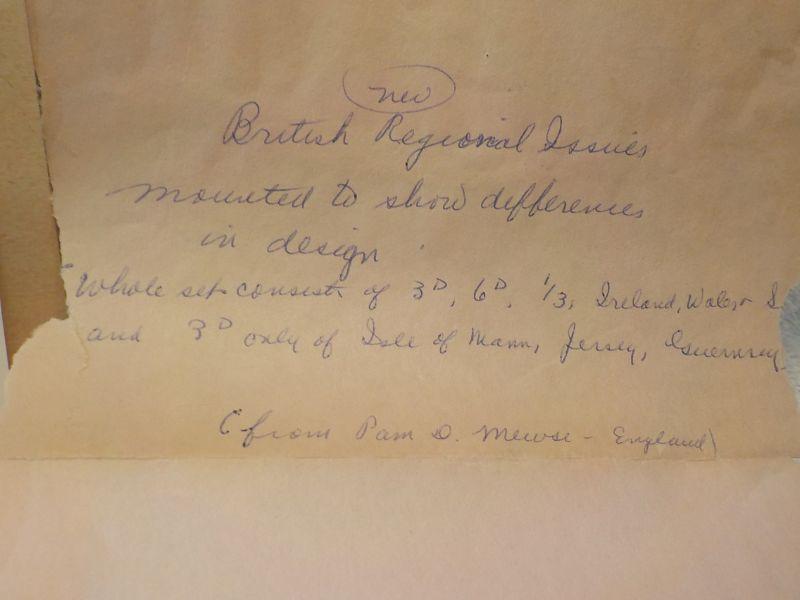 new
British Regional Issues
mounted to show differences
in design
Whole set consists of 3D, 6D, 1/3, Ireland, Wales + S
and 3D only of Isle of Mann, Jersey, Guernsey
(from Pam D. Mewse - England)